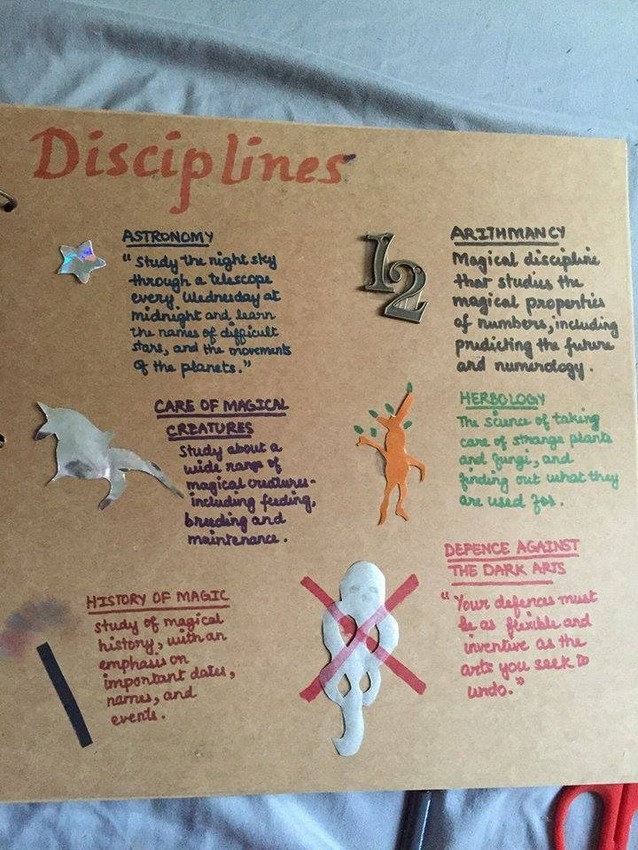 Disciplines
ASTRONOMY
"Study the night sky
through a telescope
every Wednesday at
midnight and learn
the names of difficult
stars, and the movements
of the planets."
12
ARITHMANCY
Magical discipline
that studies the
magical properties
of numbers, including
predicting the future
and numerology.
CARE OF MAGICAL
CREATURES
Study about a
wide range of
magical creatures-
including feeding,
breeding and
maintenance.
HERBOLOGY
The science of taking
care of strange plants
and fungi, and
finding out what they
are used for.
HISTORY OF MAGIC
Study of magical
history, with an
emphasis on
important dates,
names, and
events.
DEFENCE AGAINST
THE DARK ARTS
"Your defences must
be as flexible and
inventive as the
arts you seek to
undo."